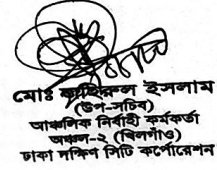 মোঃ খাইরুল ইসলাম
(উপ-সচিব)
আঞ্চলিক নির্বাহী কর্মকর্তা
অঞ্চল-২ (খিলগাঁও)
ঢাকা দক্ষিণ সিটি কর্পোরেশন